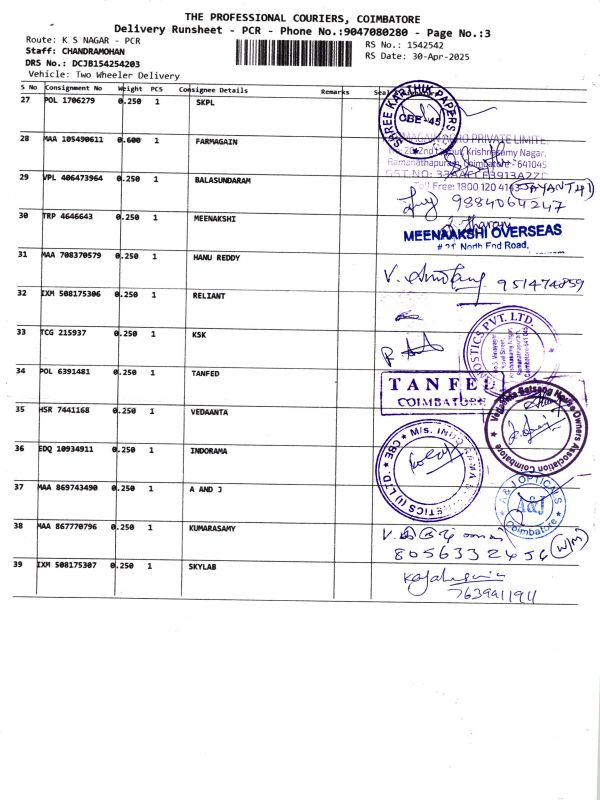 THE PROFESSIONAL COURIERS, COIMBATORE
Delivery Runsheet - PCR - Phone No.:9047080280 - Page No.:3
Route: K S NAGAR - PCR
RS No.: 1542542
Staff: CHANDRAMOHAN
RS Date: 30-Apr-2025
DRS No.: DCJB154254203
Vehicle: Two Wheeler Delivery
S No Consignment No Weight PCS Consignee Details Remarks
27 POL 1706279 0.250 1 SKPL
SHREE KARTHIK PAPERS
CBE-45
28 MAA 105490611 0.600 1 FARMAGAIN
PRIVATE LIMITE
Krishnasamy Nagar,
Ramanathapuram, Coimbatore - 641045
29 VPL 406473964 0.250 1 BALASUNDARAM
Free: 1800 120
(JAYANTHI)
9884064247
30 TRP 4646643 0.250 1 MEENAKSHI
MEENAAKSHI OVERSEAS
# 21 North End Road,
31 MAA 708370579 0.250 1 HANU REDDY
951474859
32 IXM 508175306 0.250 1 RELIANT
33 TCG 215937 0.250 1 KSK
34 POL 6391481 0.250 1 TANFED
TANFED
COIMBATORE
35 HSR 7441168 0.250 1 VEDAANTA
Vedanta Satsang House Owners Association Coimbatore
36 EDQ 10934911 0.250 1 INDORAMA
37 MAA 869743490 0.250 1 A AND J
A & J OPTICALS
A&J
Coimbatore
38 MAA 867770796 0.250 1 KUMARASAMY
8056332456
39 IXM 508175307 0.250 1 SKYLAB
7639911911